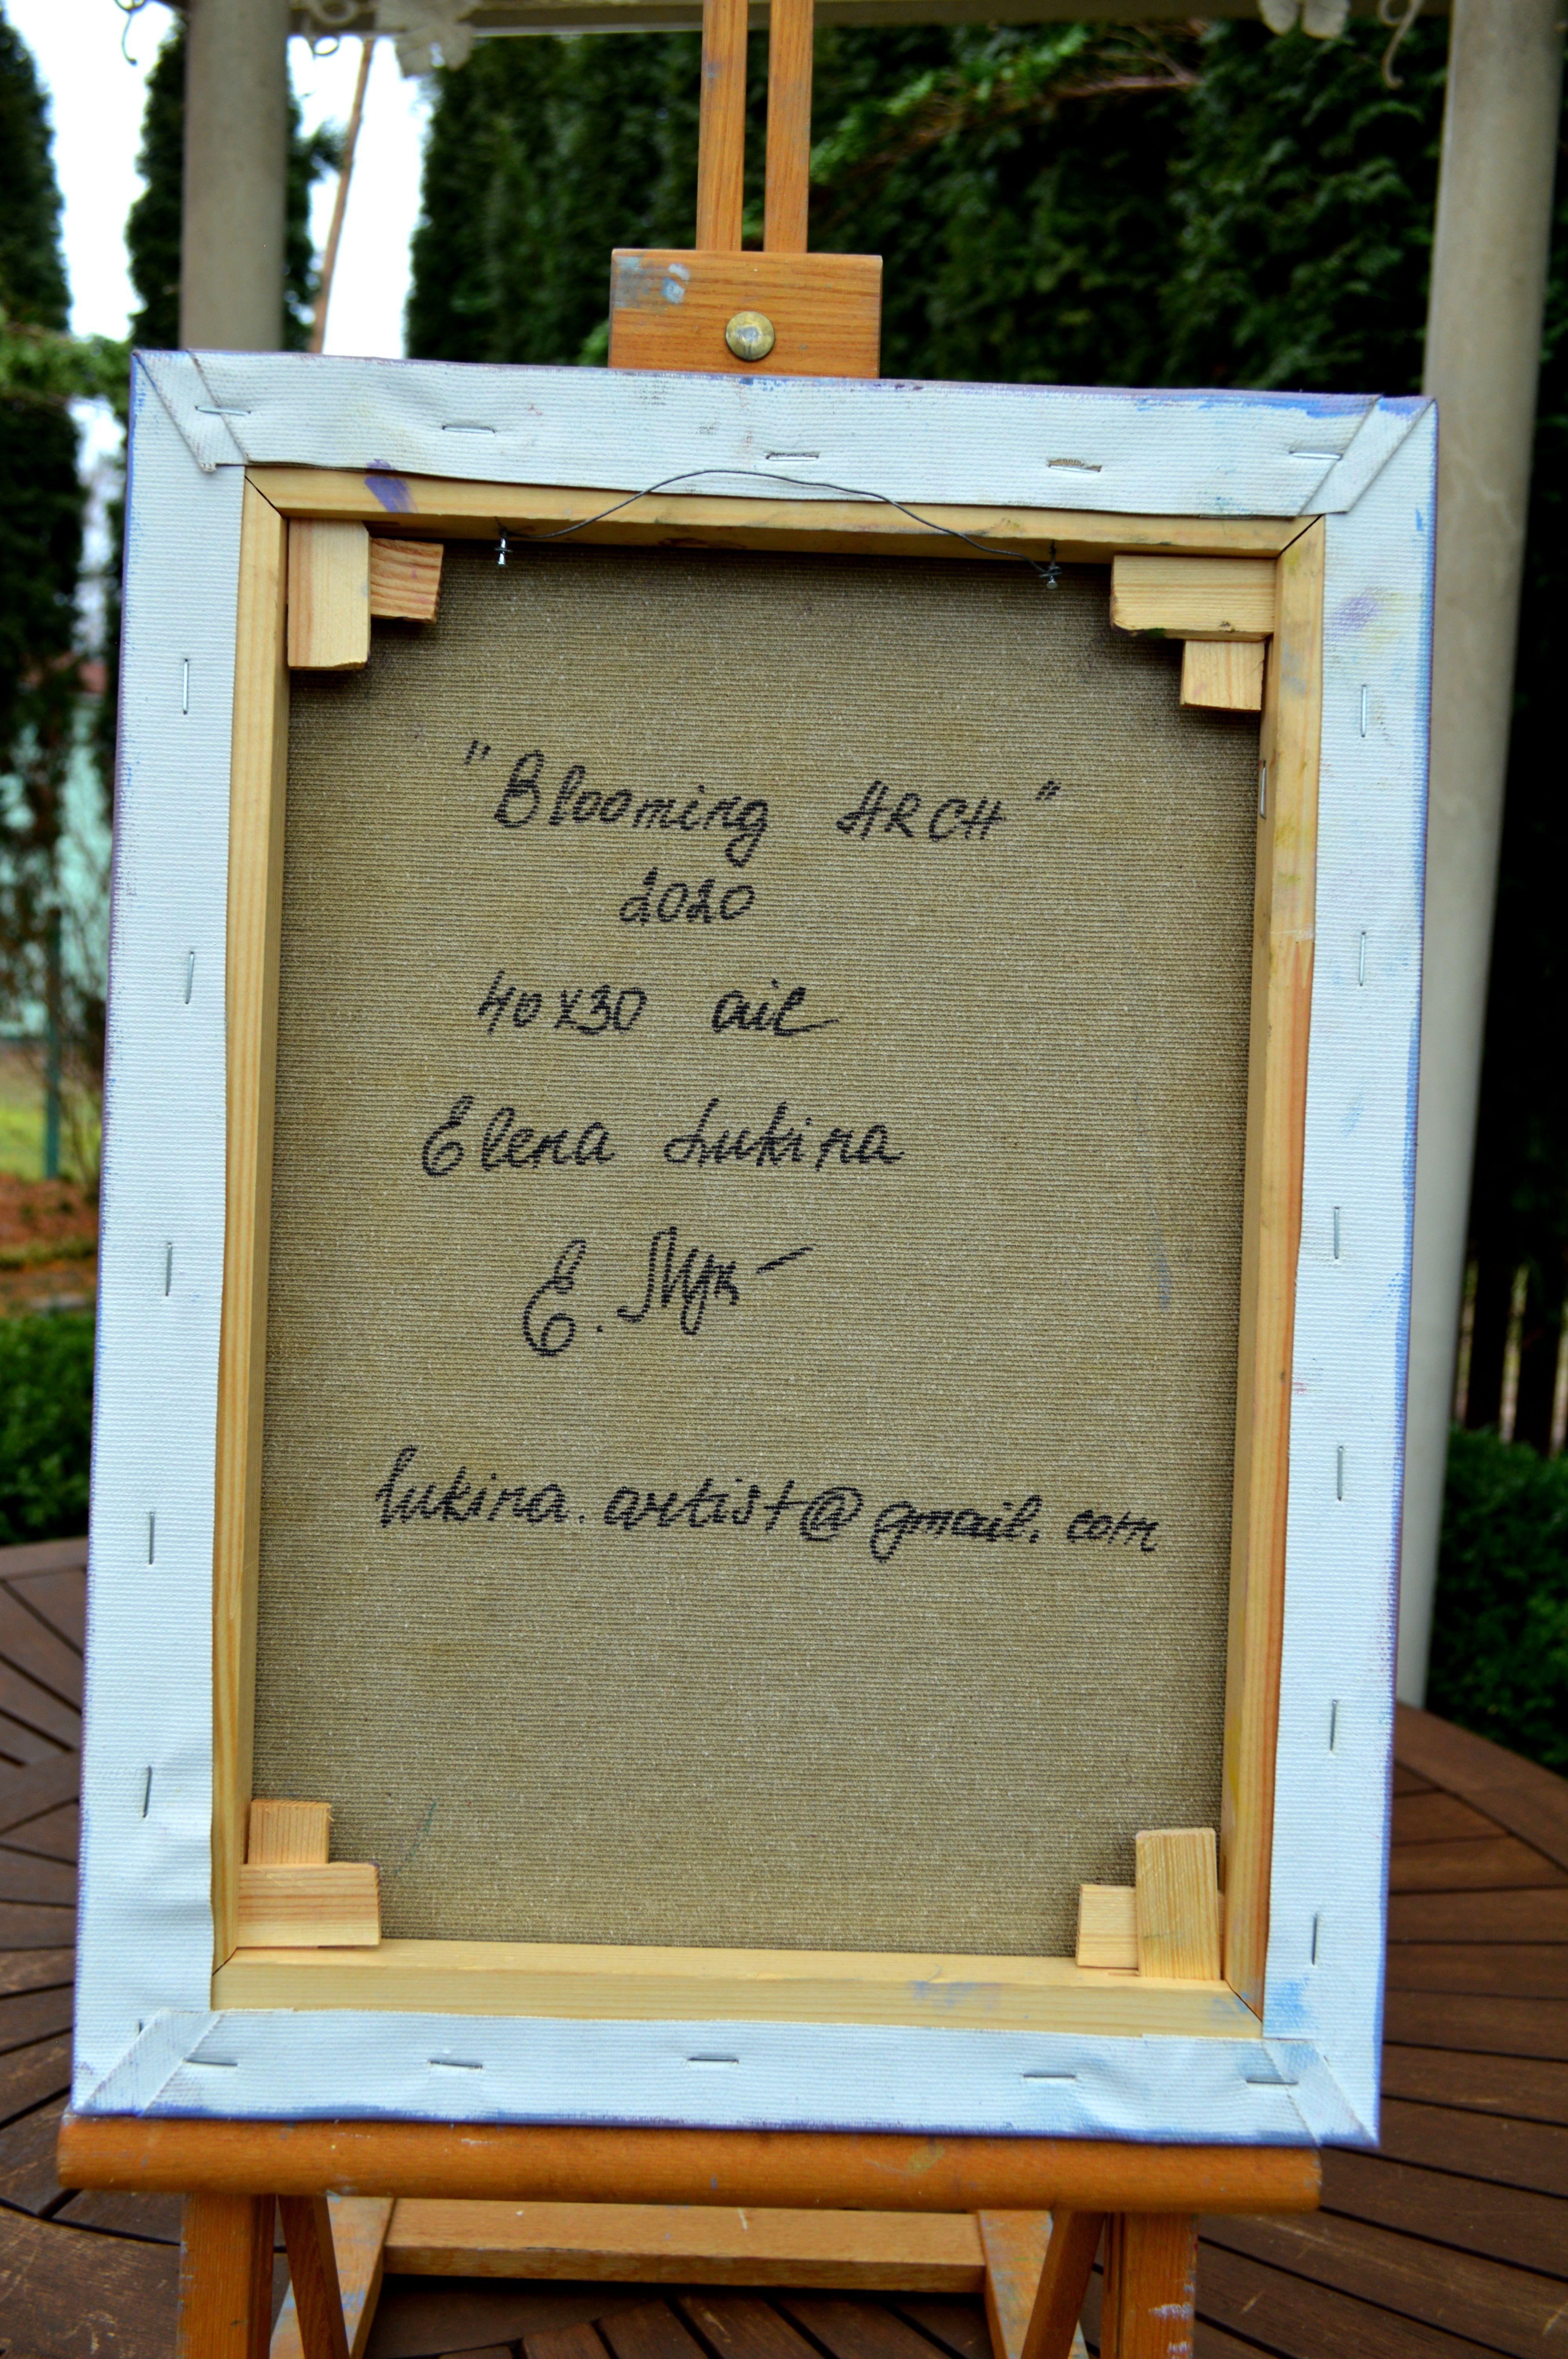 "Blooming ARCH"
2020
40x30 oil
Elena Lukina
Е. Лук-
lukina.artist@gmail.com